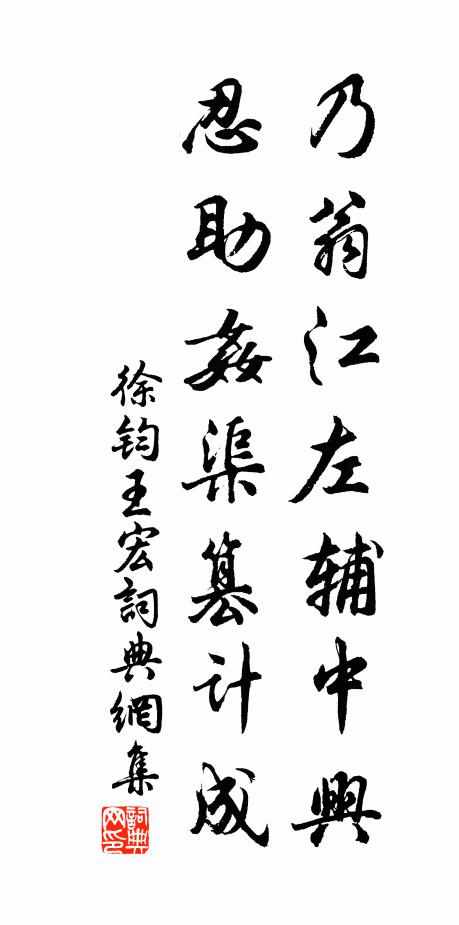 乃翁江左辅中興
忍助姦渠篡计成
徐钧王宏詞典網集
詞典网印